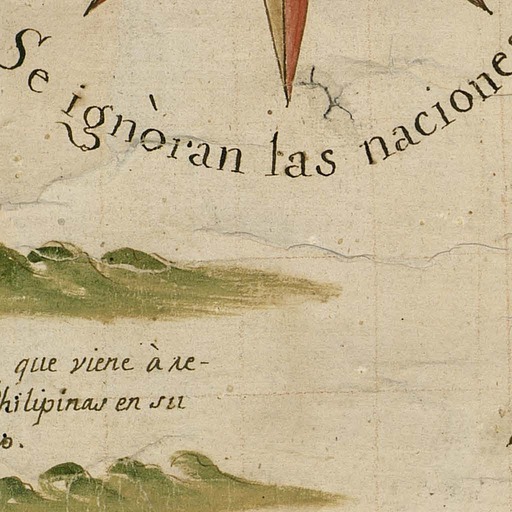 Se ignòran las nacione
que viene à re-
hilipinas en su